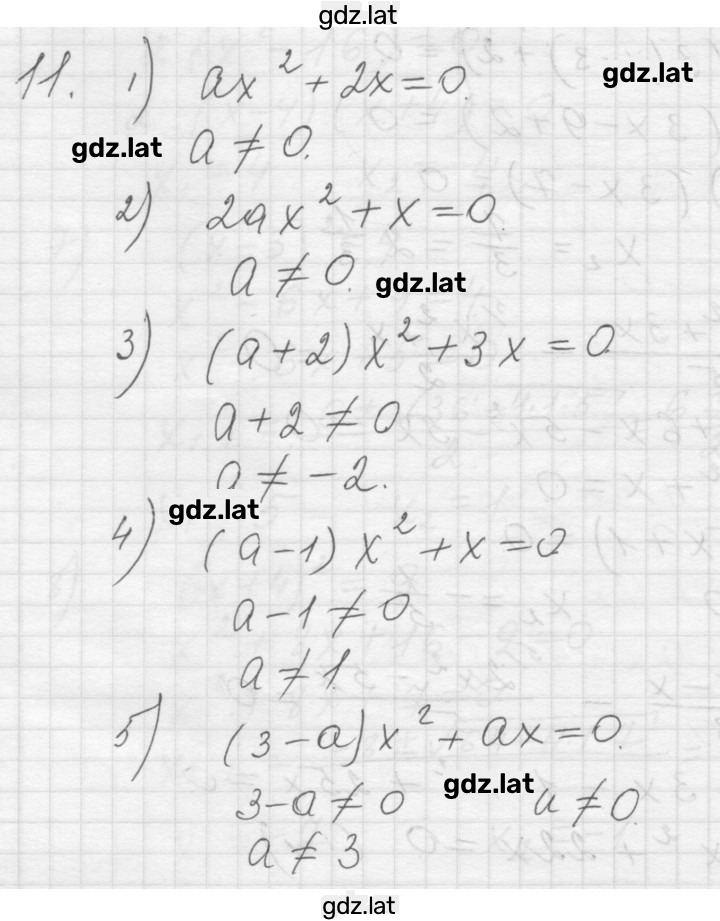 gdz.lat
11. 1) ax² + 2x = 0.
gdz.lat
gdz.lat
a ≠ 0.
2) 2ax² + x = 0.
a ≠ 0.
gdz.lat
3) (a + 2) x² + 3x = 0.
a + 2 ≠ 0
a ≠ -2.
gdz.lat
4) (a - 1) x² + x = 0
a - 1 ≠ 0
a ≠ 1.
5) (3 - a) x² + ax = 0.
gdz.lat
3 - a ≠ 0 a ≠ 0.
a ≠ 3
gdz.lat